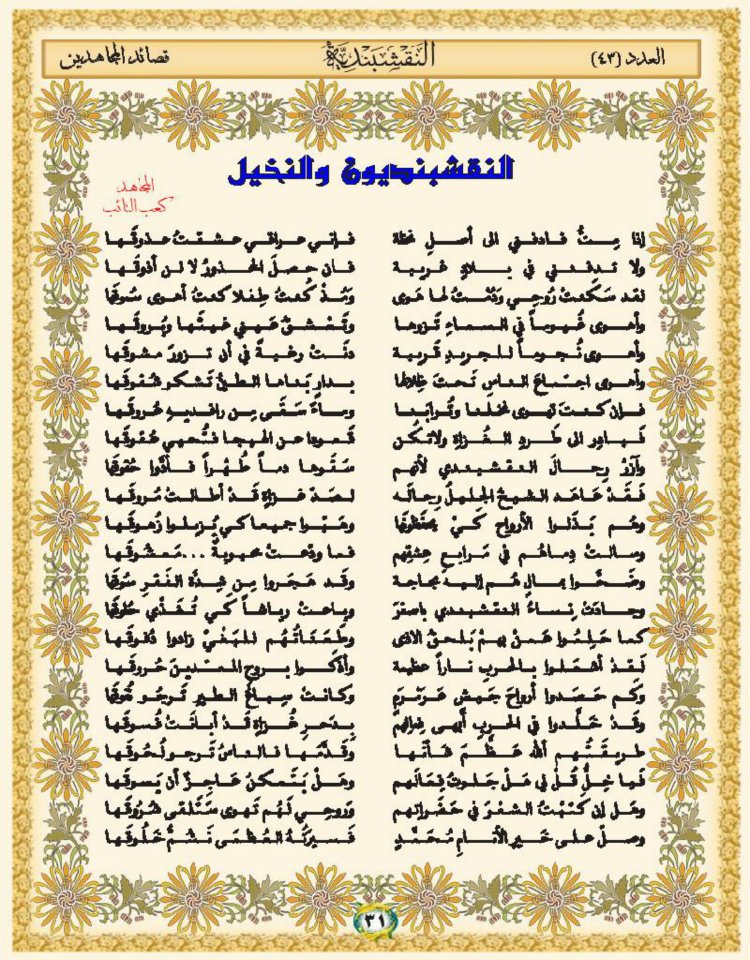 العدد (٤٣) النَّقْشَبَنْدِيَّة قصائد المجاهدين
النقشبنديون والنخيل
المجاهد
كعب التائب
إذا مِتُّ فادفني الى أصلِ نخلة فإني عراقي عشقتُ عذوقَها
ولا تدفنني في بلادٍ غريبة فان حصلَ المحذورُ لا لن أذوقَها
لقد سَكَنتْ رُوحي وتُقتُ لما هَوى ومُذْ كُنتُ طِفلا كنتُ أهوى سُوقَها
وأهوى غُيوماً في السماءِ تَزورها وتَعْشقُ عَيني غيثَها وبُروقَها
وأهوى نُجوماً للجريدِ قَريبة دنَتْ رغبةً في أن تزورَ مشوقَها
وأهوى اجتماعَ الناسِ تَحتَ ظِلالها بدارٍ بَناها الطينُ تَشكو شُقوقَها
فإن كنتَ تهوى نخلَنا وتُرابَنا وماءً سَقَى مِن رافديهِ عُروقَها
فبادِر الى طَردِ الغُزاةِ ولاتكن قَعوداً عن الهيجا فتُحيي عُقوقَها
وآزرْ رِجالَ النقشبندي لأنهم سَقَوها دماً طُهْراً فأدَّوا حُقوقَها
فَقَدْ عَاهَد الشيخُ الجليلُ رِجالَه لصدِّ غزاةٍ قدْ أطالتْ مُروقَها
وهُم بَذَلوا الأرواحَ كَيْ يحفَظونَها وهَبّوا جميعا كي يُزيلوا زُهوقَها
وسالتْ دِماهُم في مَرابعِ عِشقِهم فما ودَّعتْ محبوبةٌ ...مَعشُوقَها
وضَحَّوا بمالٍ هُم إليه بحاجة وقد هَجَروا مِن شِدَّةِ الفَقرِ سُوقَها
وجادَتْ نِساءُ النقشبندي باصفرَ وباعتْ رياشاً كَي تُغذّي حُلوقَها
كما حَلِمُوا عَمنْ بِهمْ يَلحقُ الاذى وطَعَناتُهم للبَغْيِ زادوا دُفوقَها
لَقدْ أشعَلوا بالحربِ ناراً عظيمة وأذكَوا بروحِ المسلمينَ حُروقَها
وكم حَصدوا أرواحَ جَيشٍ عَرَمْرَمٍ وكانتْ سِباعُ الطيرِ تَرجُو نُفوقَها
وقدْ خَلَّدوا في الحربِ أبهى فِعالِهم بِدَحرِ غُزاةٍ قَدْ أبانَتْ فُسوقَها
طريقَتُهم اللهُ عَظَّمَ شأنَها وقَدَّمَها فالناسُ تَرجو لُحوقَها
فيا خِلُّ قُلْ لي هَلْ جَلَوتَ فِعالَهم وهَلْ يَتَمكنُ عَاجزٌ أن يَسوقَها
وهل إن كَتبْتُ الشعْرَ في حَضَراتِهم ورَوحي لَهُم تَهوى سَتَلقى شُرُوقَها
وصلِّ على خَيرِ الأنامِ مُحَمَّدٍ فسيرَتُهُ العُظْمَى نَشمُّ خَلُوقَها
٣١